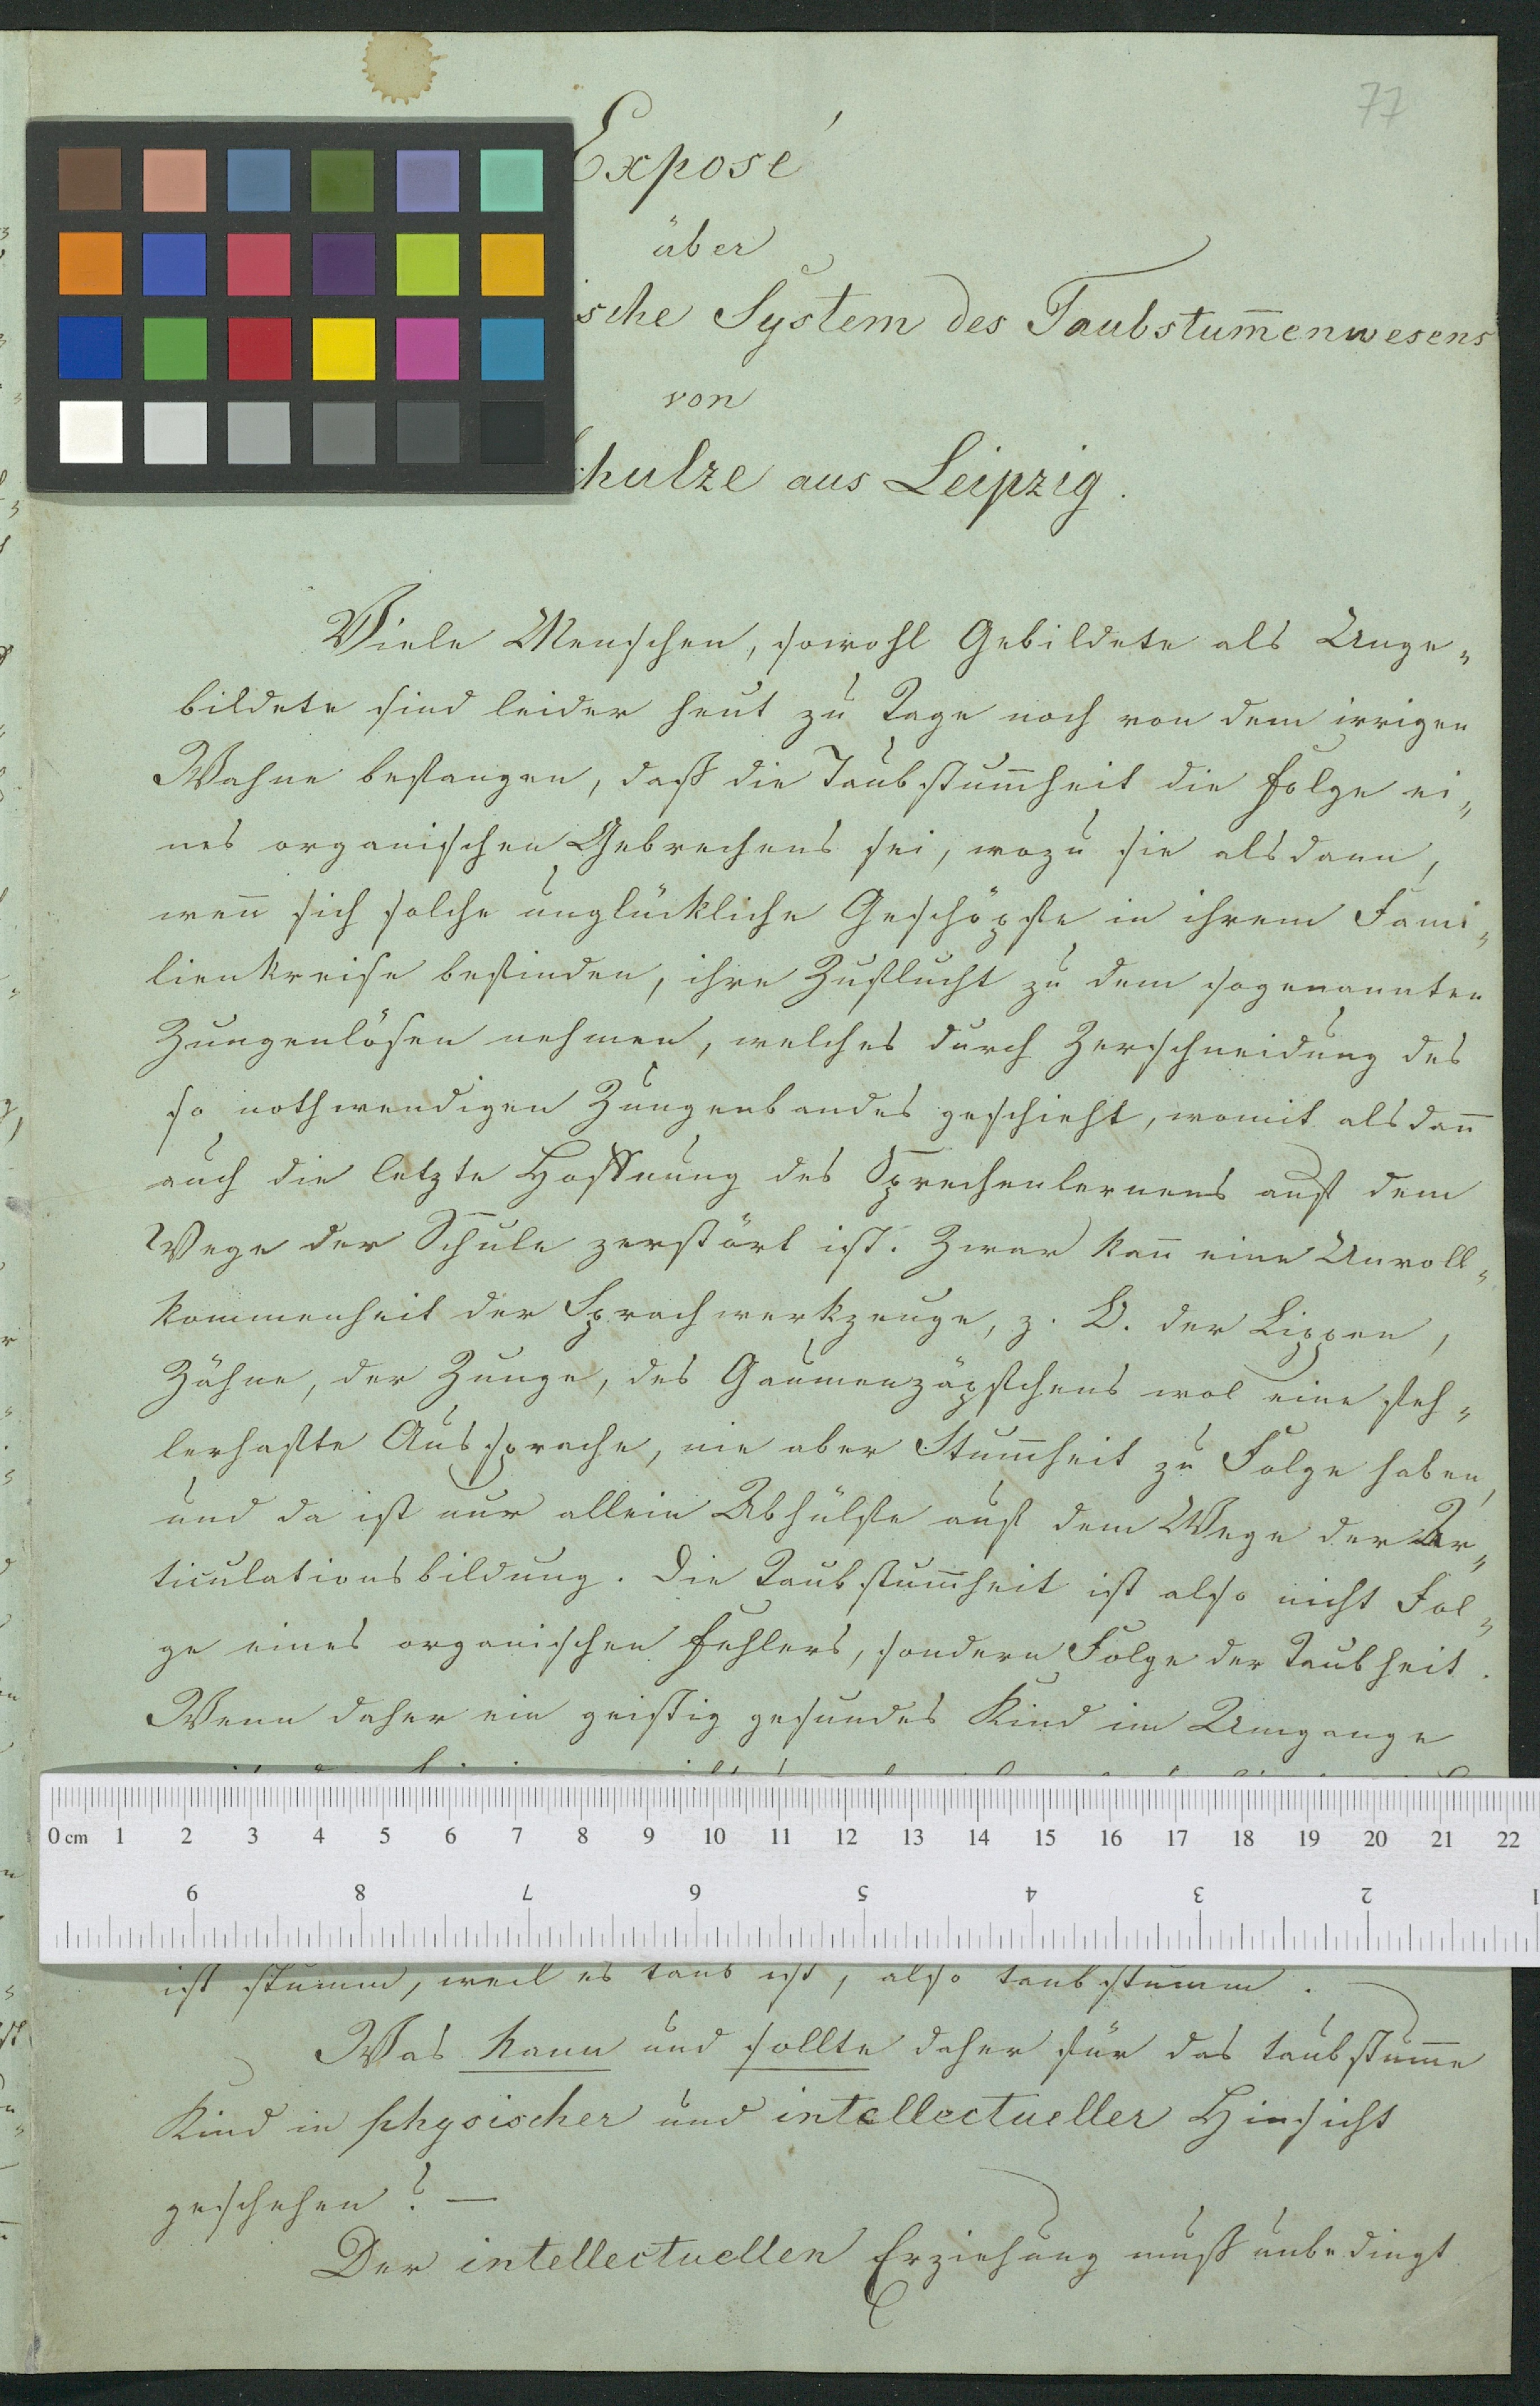 77
Exposé
über
sche System des Taubstum̅enwesens
von
hulze aus Leipzig.
Viele Menschen, sowohl Gebildete als Unge¬
bildete sind leider heut zu Tage noch von dem irrigen
Wahne befangen, daß die Taubstum̅heit die Folge ei¬
nes organischen Gebrechens sei, wozu sie alsdann,
wen̅ sich solche unglückliche Geschöpfe in ihrem Fami¬
lienkreise befinden, ihre Zuflucht zu dem sogenannten
Zungenlösen nehmen, welches durch Zerschneidung des
so nothwendigen Zungenbandes geschieht, womit alsdan̅
auch die letzte Hoffnung des Sprechenlernens auf dem
Wege der Schule zerstört ist. Zwar kan̅ eine Unvoll¬
kommenheit der Sprachwerkzeuge, z. B. der Lippen,
Zähne, der Zunge, des Gaumenzäpfchens wol eine feh¬
lerhafte Aussprache, nie aber Stum̅heit zu Folge haben,
und da ist nur allein Abhülfe auf dem Wege der Ar¬
ticulationsbildung. Die Taubstum̅heit ist also nicht Fol¬
ge eines organischen Fehlers, sondern Folge der Taubheit.
Wenn daher ein geistig gesundes Kind im Umgange
0 cm 1 2 3 4 5 6 7 8 9 10 11 12 13 14 15 16 17 18 19 20 21 22
9 8 7 6 5 4 3 2 1
ist stumm, weil es taub ist, also taubstumm.
Was kann und sollte daher für das taubstum̅e
Kind in physischer und intellectueller Hinsicht
geschehen? —
Der intellectuellen Erziehung muß unbedingt